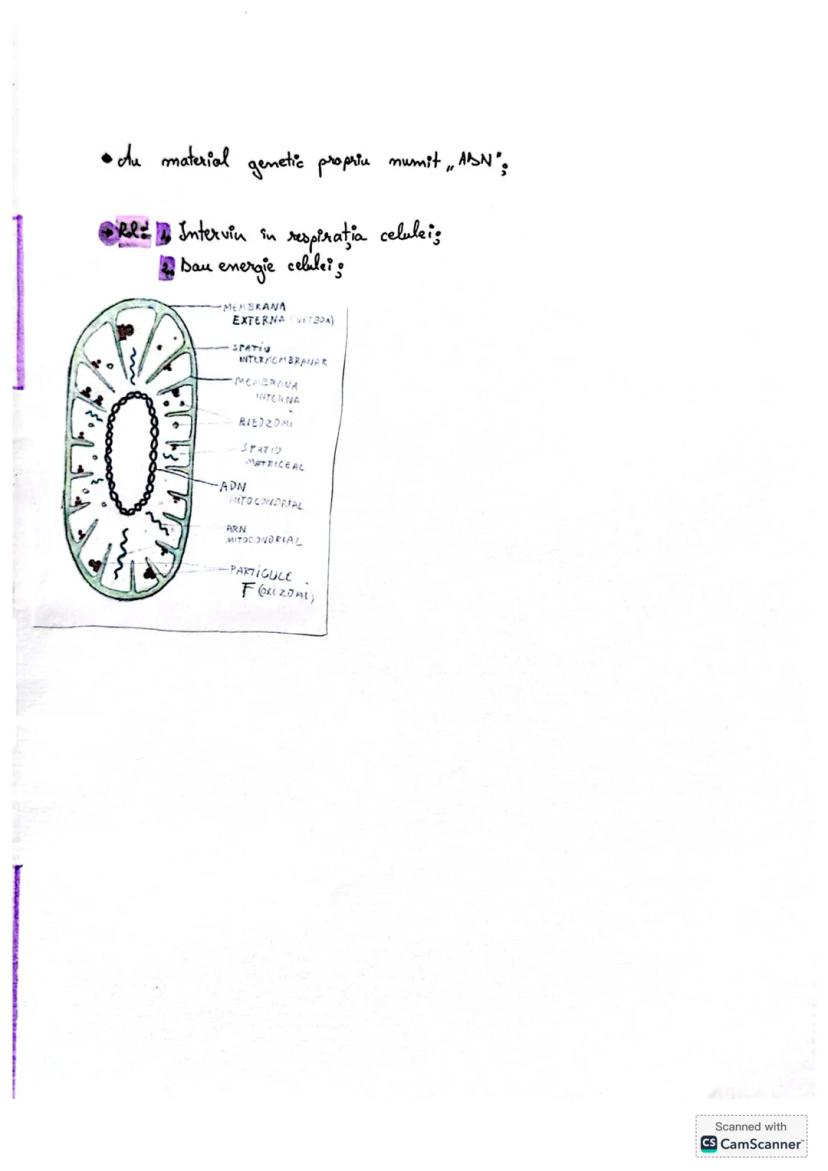 • Au material genetic propriu numit „ADN";
→ Rol: 1. Intervin în respirația celulei;
2. Dau energie celulei;
MEMBRANA
EXTERNA (NETEDA)
SPATIU
INTERMEMBRANAR
MEMBRANA
INTERNA
RIBOZOMI
SPATIU
MATRICEAL
ADN
MITOCONDRIAL
ARN
MITOCONDRIAL
PARTICULE
F (OXIZOMI)
Scanned with
CS CamScanner